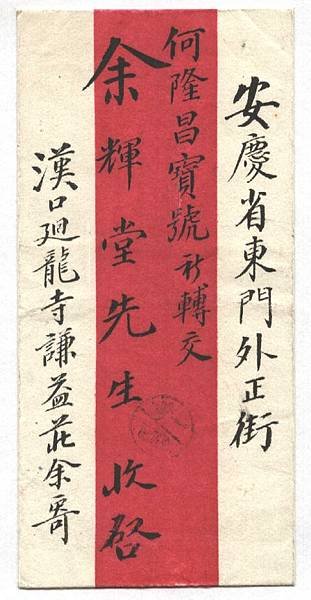 安慶省東門外正街
何隆昌寶號祈轉交
余輝堂先生收啓
漢口廻龍寺謙益莊余寄